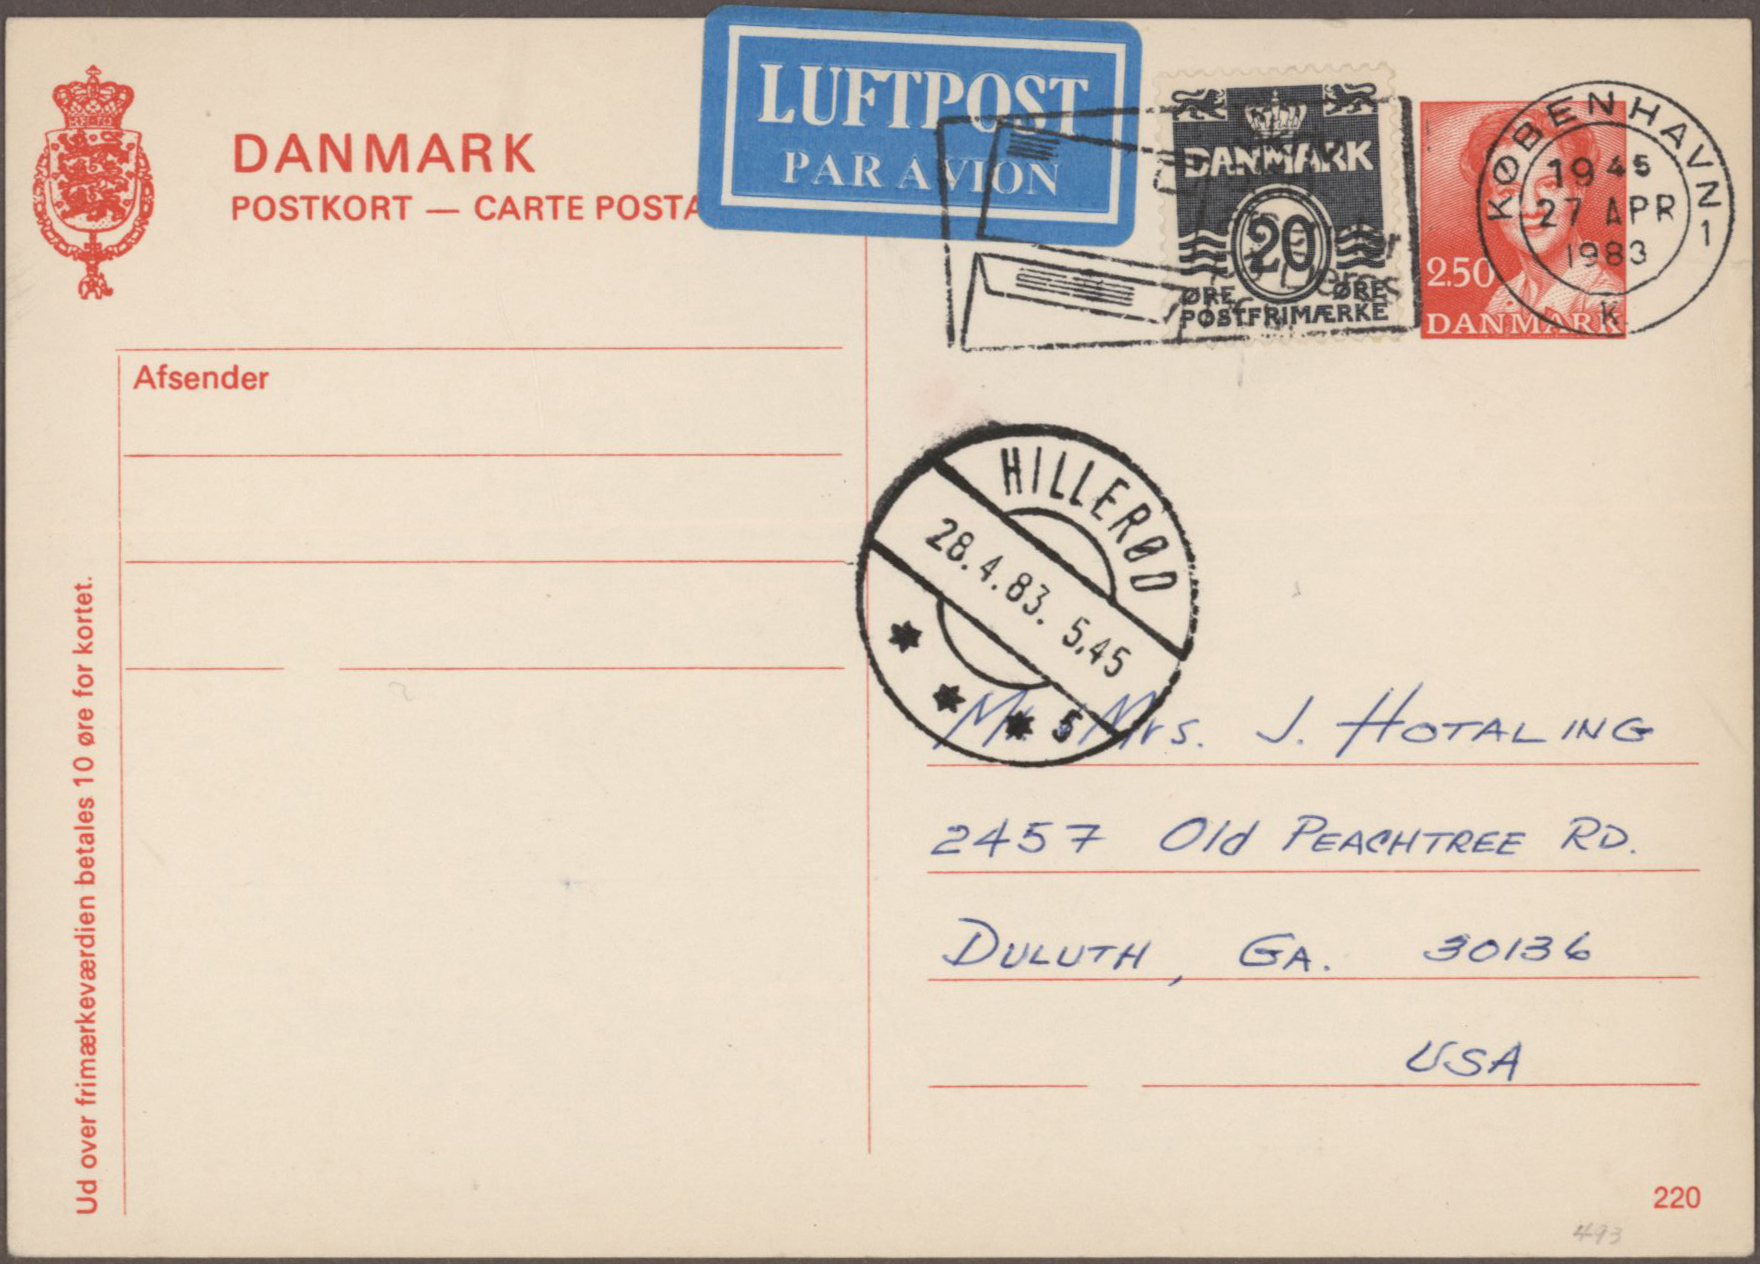 DANMARK
POSTKORT — CARTE POSTA
LUFTPOST
PAR AVION
DANMARK
20
ØRE ØRE
POSTFRIMÆRKE
2.50
DANMARK
KØBENHAVN 1
19 45
27 APR
1983
K
Afsender
HILLERØD
28.4.83. 5.45
5
Mr. Mrs. J. HOTALING
2457 Old PEACHTREE RD.
DULUTH, GA. 30136
USA
Ud over frimærkeværdien betales 10 øre for kortet.
220
493